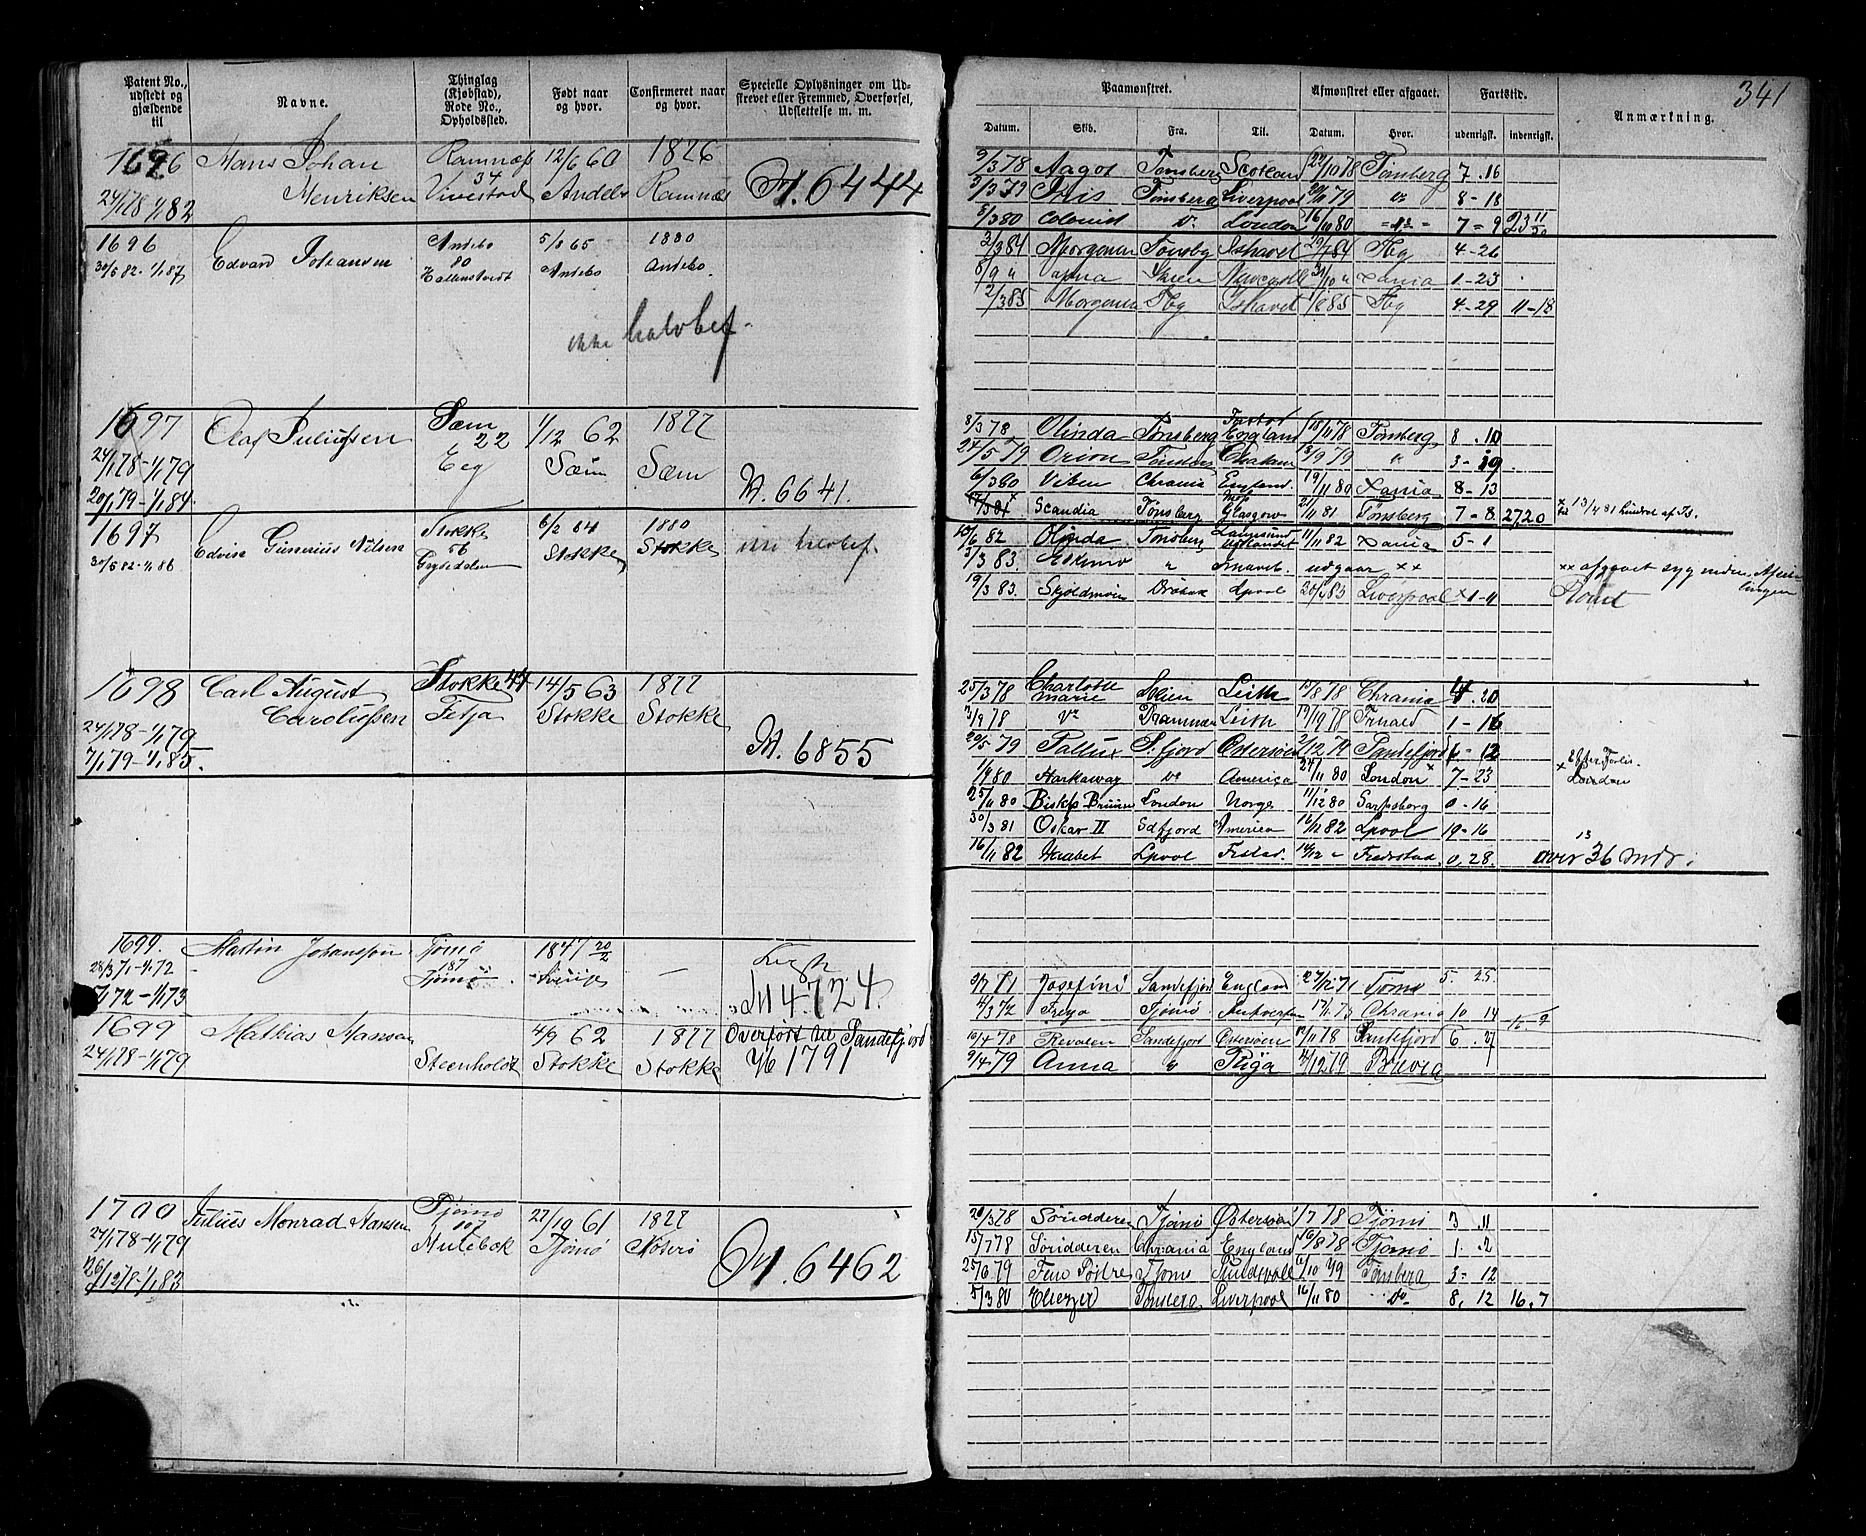 341
Patent No., udstedt og gjældende til
Navne.
Thinglag (Kjøbstad), Rode No., Opholdssted.
Født naar og hvor.
Confirmeret naar og hvor.
Specielle Oplysninger om Udstrevet eller Fremmed, Overførsel, Udslettelse m. m.
Paamønstret.
Afmønstret eller afgaaet.
Fartstid.
Anmærkning.
Datum. Skib. Fra. Til. Datum. Hvor. udenrigsk. indenrigsk.
1696 Hans Johan Ramnæs 12/6 60 1876
Henriksen 34 Vivestad Andebo Ramnæs M. 6444
24/1 78 1/1 82
9/3 78 Aagot Tønsberg Scotland 22/10 78 Tønsberg 7 . 16
3/3 79 Iris Tønsberg Liverpool 20/11 79 8 - 18
5/3 80 Colonist Do London 16/11 80 7 - 9 23 11/30
1696 Edvard Johansen Andebo 5/8 65 1880
30/5 82 - 1/1 87 80 Andebo Andebo
ikke halvbef.
2/3 84 Morgenen Tønsbg Ishavet 20/7 84 Tbg 4 - 26
8/9 " Anna Newcastle 31/10 " Xania 1 - 23
2/3 85 Morgenen Tbg Ishavet 1/8 85 Tbg 4 - 29 11 - 18
1697 Olaf Juliussen Sæm 1/12 62 1877
24/1 78 - 1/1 79 22 Eeg Sæm Sæm
20/1 79 - 1/1 84. M. 6641.
8/3 78 Olinda Tønsberg England 15/11 78 Tønsberg 8 . 10
24/5 79 Orion Tønsberg 13/9 79 " 3 - 19
6/3 80 Viken Chrania England. 19/11 80 Xania 8 - 13
Scandia Tønsberg Glasgow 21/11 81 Tønsberg 7 - 8 27 20
1697 Edvin Gunerius Nilsen Stokke 6/2 64 1880
30/5 82 - 1/1 86 56 Stokke Stokke
ikke halvbef.
10/6 82 Olinda Tønsberg 11/11 82 Xania 5 - 1
3/3 83. Eskimo " Ishavet. udgaar xx
19/3 83. Skjoldmøen Drøbak Lpool 20/4 83 Liverpool x 1 - 4
xx afgaaet syg
Rømt
1698 Carl August Stokke 44 14/5 63 1877
24/1 78 - 1/1 79 Caroliussen Stokke Stokke
7/1 79 - 1/1 85. M. 6855
25/3 78 Charlotte Marie Leith 17/8 78 Chrania 4 . 20
3/9 78 Do Drammen Leith 19/10 78 1 - 16
20/5 79 Pollux S.fjord Østersøen 2/12 79 Sandefjord 6 - 12
1/4 80 Harkaway Do America 24/11 80 London x 7 - 23
25/11 80 Biskp Bruun London Norge 11/12 80 Sarpsborg 0 - 16
30/3 81 Oskar II Sdfjord America 16/11 82 Lpool 19 - 16
16/11 82 Haabet Lpool Frstad. 14/12 " Fredrstad 0. 28.
x Efter Forlis
London
over 36 mdr.
1699. Martin Johansson Tjømø 1847 20/2
28/3 71 - 1/1 72 187 Tjømø Sverige —
1/1 72 - 1/1 73 M 4724.
9/7 71 Josefine Sandefjord England 27/12 71 Tjømø 5. 25
4/3 72 Freya Tjømø Antverpen 17/1 73 Chrania 10 . 14
1699 Mathias Hansen 4/9 62 1877 Overført til Sandefjord
24/1 78 - 1/1 79 Steenholdt Stokke Stokke No 1791
10/4 78 Sandefjord Østersøen 14/11 78 Sandefjord 6 . 27
9/4 79 Anna " Riga 4/12 79 Brevig
1700 Julius Monrad Hansen Tjømø 27/10 61 1877
24/1 78 - 1/1 79 107 Hulebak Tjømø Nøterø M. 6462
26/12 78 - 1/1 83
20/3 78 Søridderen Tjømø Østersøen 1/7 78 Tjømø 3 . 11
15/7 78 Søridderen Chrania England 16/8 78 Tjømø 1 . 2
25/6 79 Tjømø 6/10 79 Tønsberg 3 - 12
5/3 80 Eliezer Tønsberg Liverpool 16/11 80 Do 8. 12 16. 7